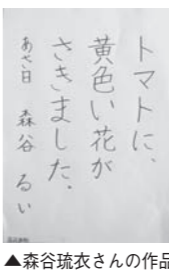 トマトに、
黄色い花が
さきました。
あさ日　森谷　るい
▲森谷琉衣さんの作品